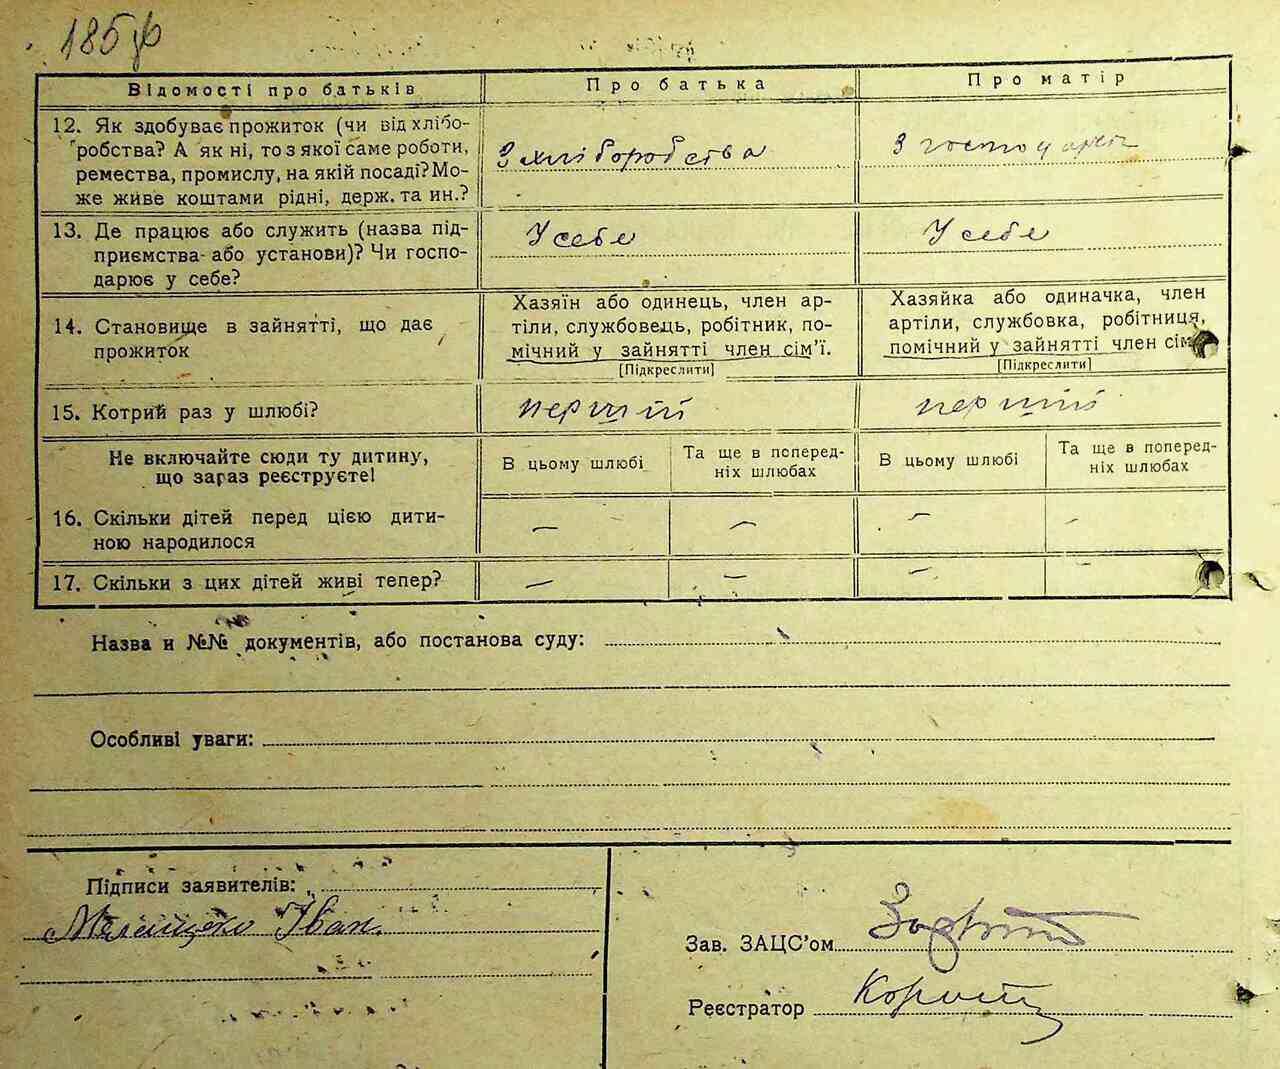 185
Відомості про батьків
Про батька
Про матір
12. Як здобуває прожиток (чи від хлібо-
робства? А як ні, то з якої саме роботи,
ремества, промислу, на якій посаді? Мо-
же живе коштами рідні, держ. та ин.?
З хліборобства
З
13. Де працює або служить (назва під-
приємства або установи)? Чи госпо-
дарює у себе?
У себе
У себе
14. Становище в зайнятті, що дає
прожиток
Хазяїн або одинець, член ар-
тіли, службовець, робітник, по-
мічний у зайнятті член сім'ї.
[Підкреслити]
Хазяйка або одиначка, член
артіли, службовка, робітниця,
помічний у зайнятті член сім
[Підкреслити]
15. Котрий раз у шлюбі?
перший
перший
Не включайте сюди ту дитину,
що зараз реєструєте!
В цьому шлюбі
Та ще в поперед-
ніх шлюбах
В цьому шлюбі
Та ще в поперед-
ніх шлюбах
16. Скільки дітей перед цією дити-
ною народилося
— — — —
17. Скільки з цих дітей живі тепер?
— — —
Назва и №№ документів, або постанова суду:
Особливі уваги:
Підписи заявителів:
Іван.
Зав. ЗАЦС'ом
Реєстратор